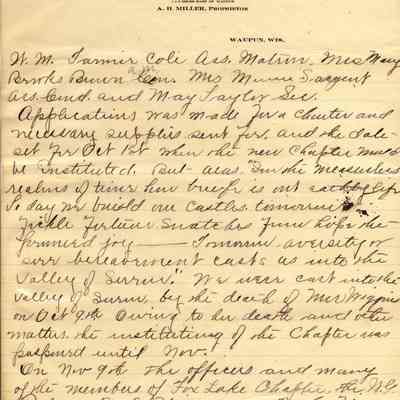 A. H. MILLER, PROPRIETOR
WAUPUN, WIS.
W. M. Tanner Cole Ass. Matron. Mrs Mary
Brooks Brown Con. Mrs Minnie Sargent
Ass. Cond. and May Taylor Sec.
Application was made for a Charter and
necessary supplies sent for, and the date
set for Oct 1st when the new Chapter
be instituted. But alas. "In the measureless
realms of time how brief is our earthly life
To day we build our castles. tomorrow
Fickle Fortune snatches from hope the
promised joy — Tomorrow adversity or
sore bereavement casts us into the
Valley of Sorrow." We were cast into the
valley of sorrow, by the death of Mrs Wiggins
on Oct 9th. Owing to her death and other
matters the instituting of the Chapter was
postponed until Nov.
On Nov 9th the officers and many
of the members of Fox Lake Chapter, the